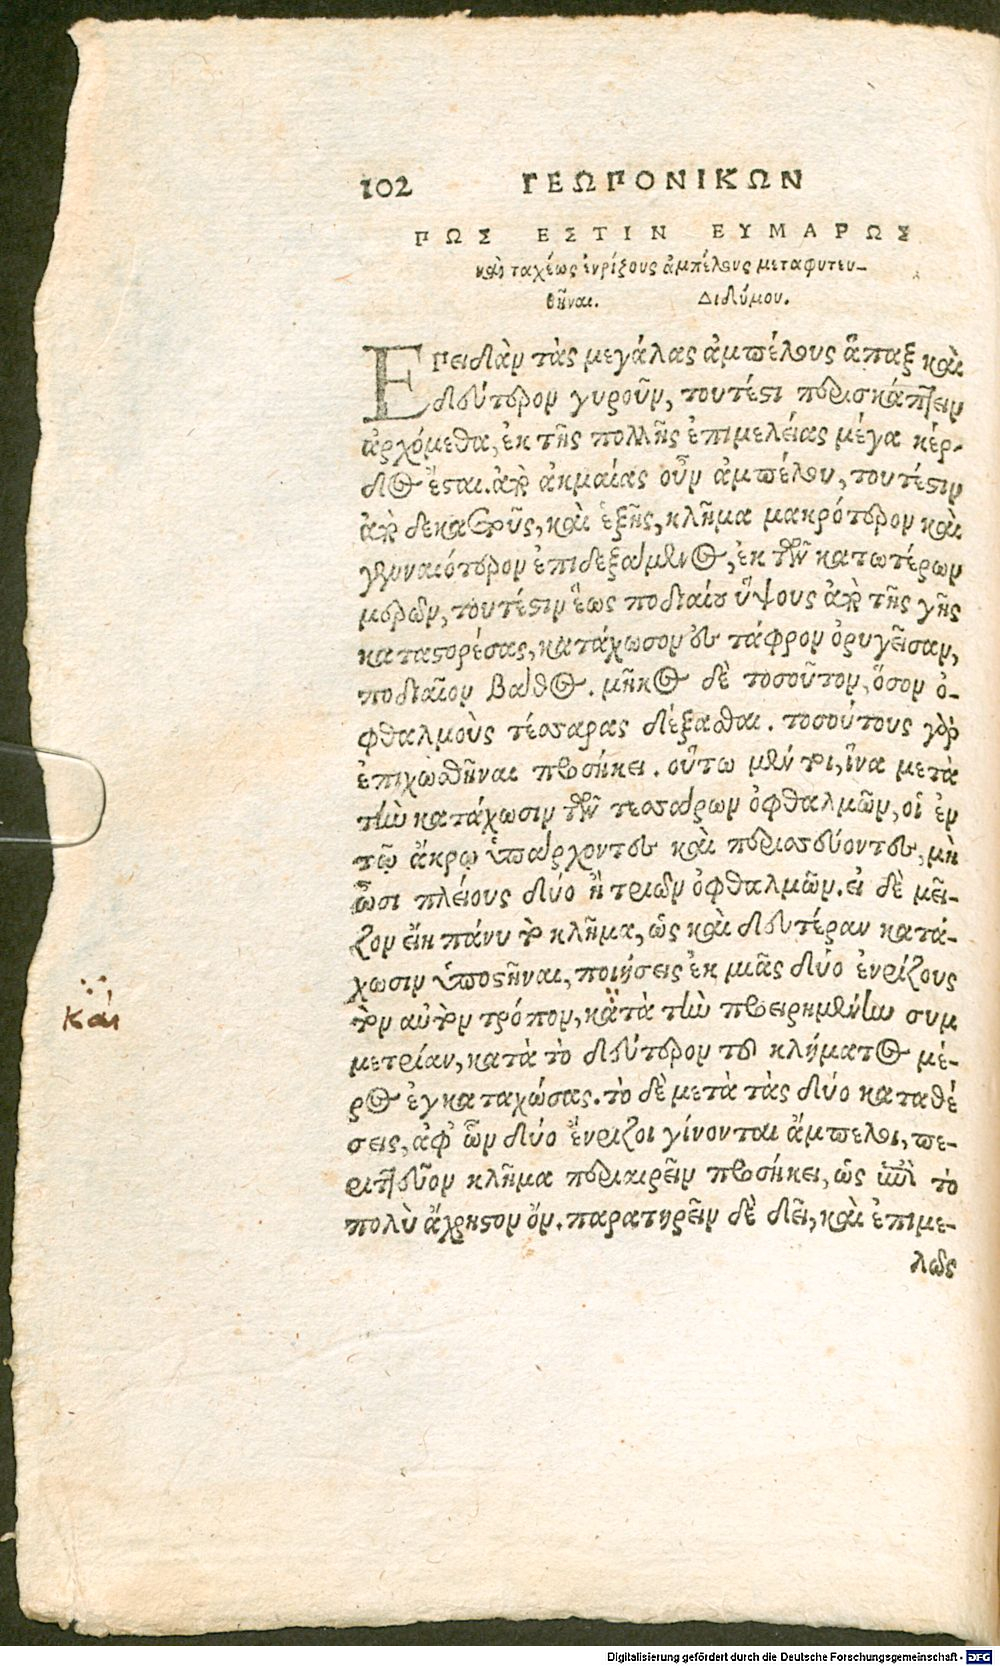 102 ΓΕΩΠΟΝΙΚΩΝ
ΠΩΣ ΕΣΤΙΝ ΕΥΜΑΡΩΣ
καὶ ταχέως ἐνρίζους ἀμπέλους μεταφυτευ-
θῆναι. Διδύμου.
ΕΠειδὰν τὰς μεγάλας ἀμπέλους ἅπαξ καὶ
δεύτερον γυροῦν, τουτέστι περισκάπτειν
ἀρχόμεθα, ἐκ τῆς πολλῆς ἐπιμελείας μέγα κέρ-
δος ἔσται. ἀπὸ ἀκμαίας οὖν ἀμπέλου, τουτέστιν
ἀπὸ δεκαετοῦς, καὶ ἑξῆς, κλῆμα μακρότερον καὶ
γενναιότερον ἐπιδεξάμενος, ἐκ τῶν κατωτέρων
μερῶν, τουτέστιν ἕως ποδιαίου ὕψους ἀπὸ τῆς γῆς
καταστορέσας, κατάχωσον εἰς τάφρον ὀρυγεῖσαν,
ποδιαῖον βάθος. μῆκος δὲ τοσοῦτον, ὅσον ὀ-
φθαλμοὺς τέσσαρας δέξασθαι. τοσούτους γὰρ
ἐπιχωσθῆναι προσήκει. οὕτω μέντοι, ἵνα μετὰ
τὴν κατάχωσιν τῶν τεσσάρων ὀφθαλμῶν, οἱ ἐν
τῷ ἄκρῳ ὑπάρχοντες καὶ περισσεύοντες, μὴ
ὦσι πλείους δύο ἢ τριῶν ὀφθαλμῶν. εἰ δὲ μεῖ-
ζον εἴη πάνυ τὸ κλῆμα, ὡς καὶ δευτέραν κατά-
χωσιν ὑποστῆναι, ποιήσεις ἐκ μιᾶς δύο ἐνρίζους
κάι
τὸν αὐτὸν τρόπον, κατὰ τὴν προειρημένην συμ
μετρίαν, κατὰ τὸ δεύτερον τοῦ κλήματος μέ-
ρος ἐγκαταχώσας. τὸ δὲ μετὰ τὰς δύο καταθέ
σεις, ἀφ' ὧν δύο ἔνριζοι γίνονται ἄμπελοι, πε-
ριττεῦον κλῆμα περιαιρεῖν προσήκει, ὡς ἐπὶ τὸ
πολὺ ἄχρηστον ὄν. παρατηρεῖν δὲ δεῖ, καὶ ἐπιμε-
λῶς
Digitalisierung gefördert durch die Deutsche Forschungsgemeinschaft - DFG